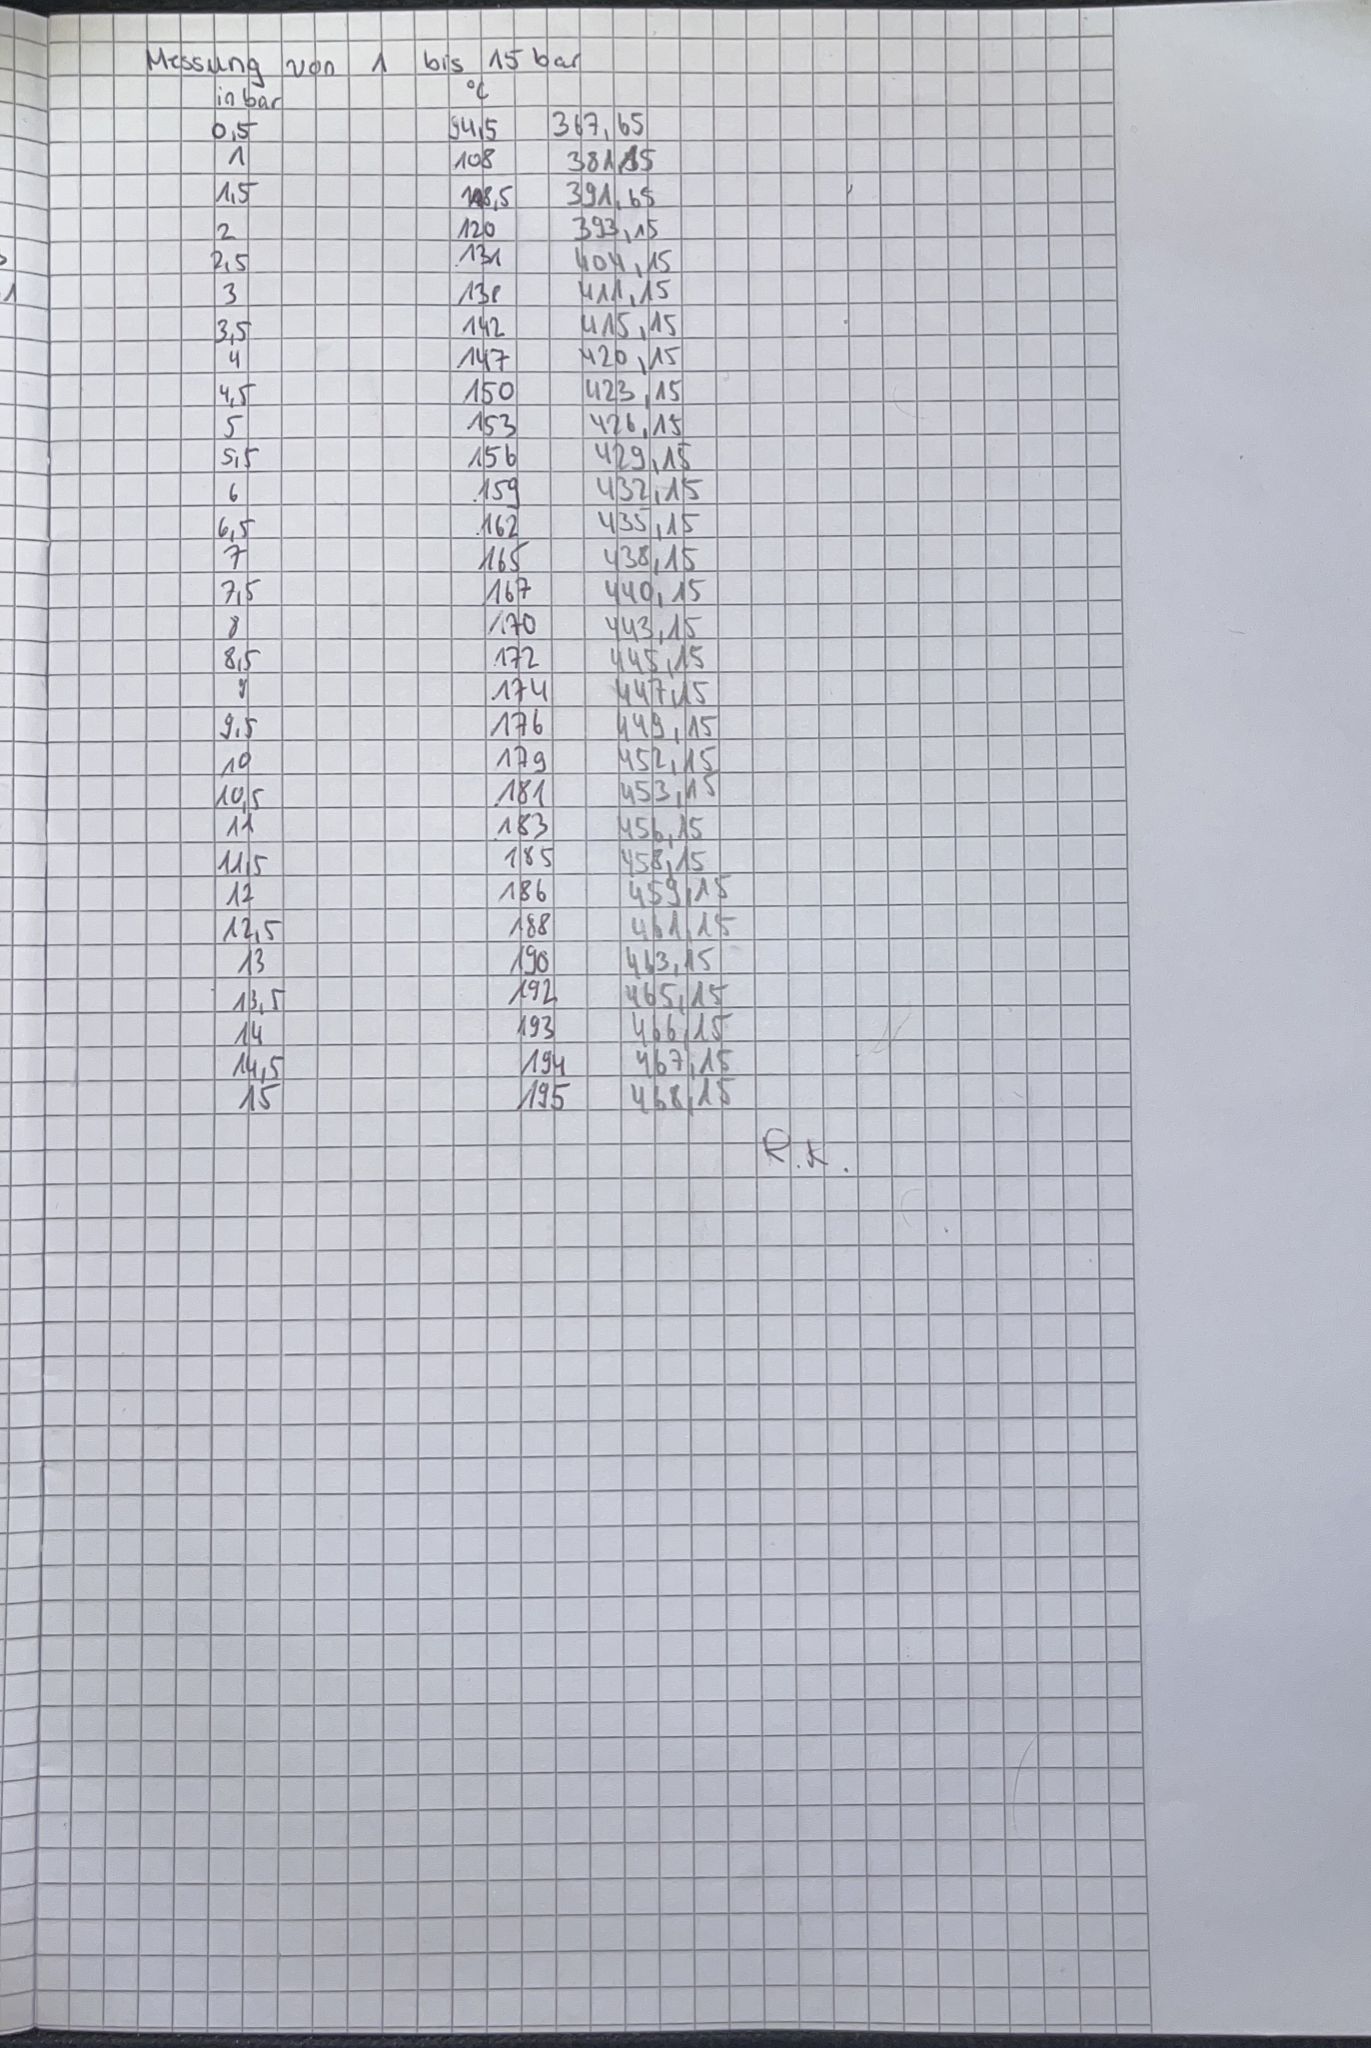 Messung von 1 bis 15 bar
in bar °C
0,5 94,5 367,65
1 108 381,15
1,5 118,5 391,65
2 120 393,15
2,5 131 404,15
3 138 411,15
3,5 142 415,15
4 147 420,15
4,5 150 423,15
5 153 426,15
5,5 156 429,15
6 159 432,15
6,5 162 435,15
7 165 438,15
7,5 167 440,15
8 170 443,15
8,5 172 445,15
9 174 447,15
9,5 176 449,15
10 179 452,15
10,5 181 453,15
11 183 456,15
11,5 185 458,15
12 186 459,15
12,5 188 461,15
13 190 463,15
13,5 192 465,15
14 193 466,15
14,5 194 467,15
15 195 468,15
R.K.